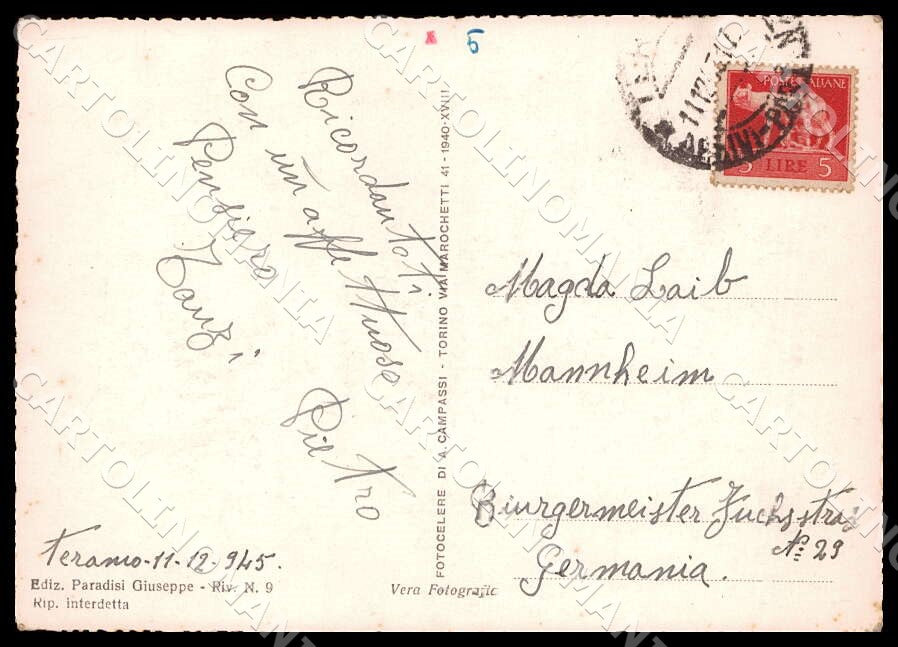 5
Ricordantoti
Con un affettuoso
Pensiero
Tanzi
Pietro
Teramo-11-12-945.
Ediz. Paradisi Giuseppe - Riv. N. 9
Rip. interdetta
Vera Fotografic
FOTOCELERE DI A. CAMPASSI - TORINO VIA MAROCHETTI 41 - 1940-XVIII
POSTE ITALIANE
5 LIRE 5
Magda Laib
Mannheim
Biurgermeister Fuchsstraz
No 29
Germania.
CARTOLINOMANIA